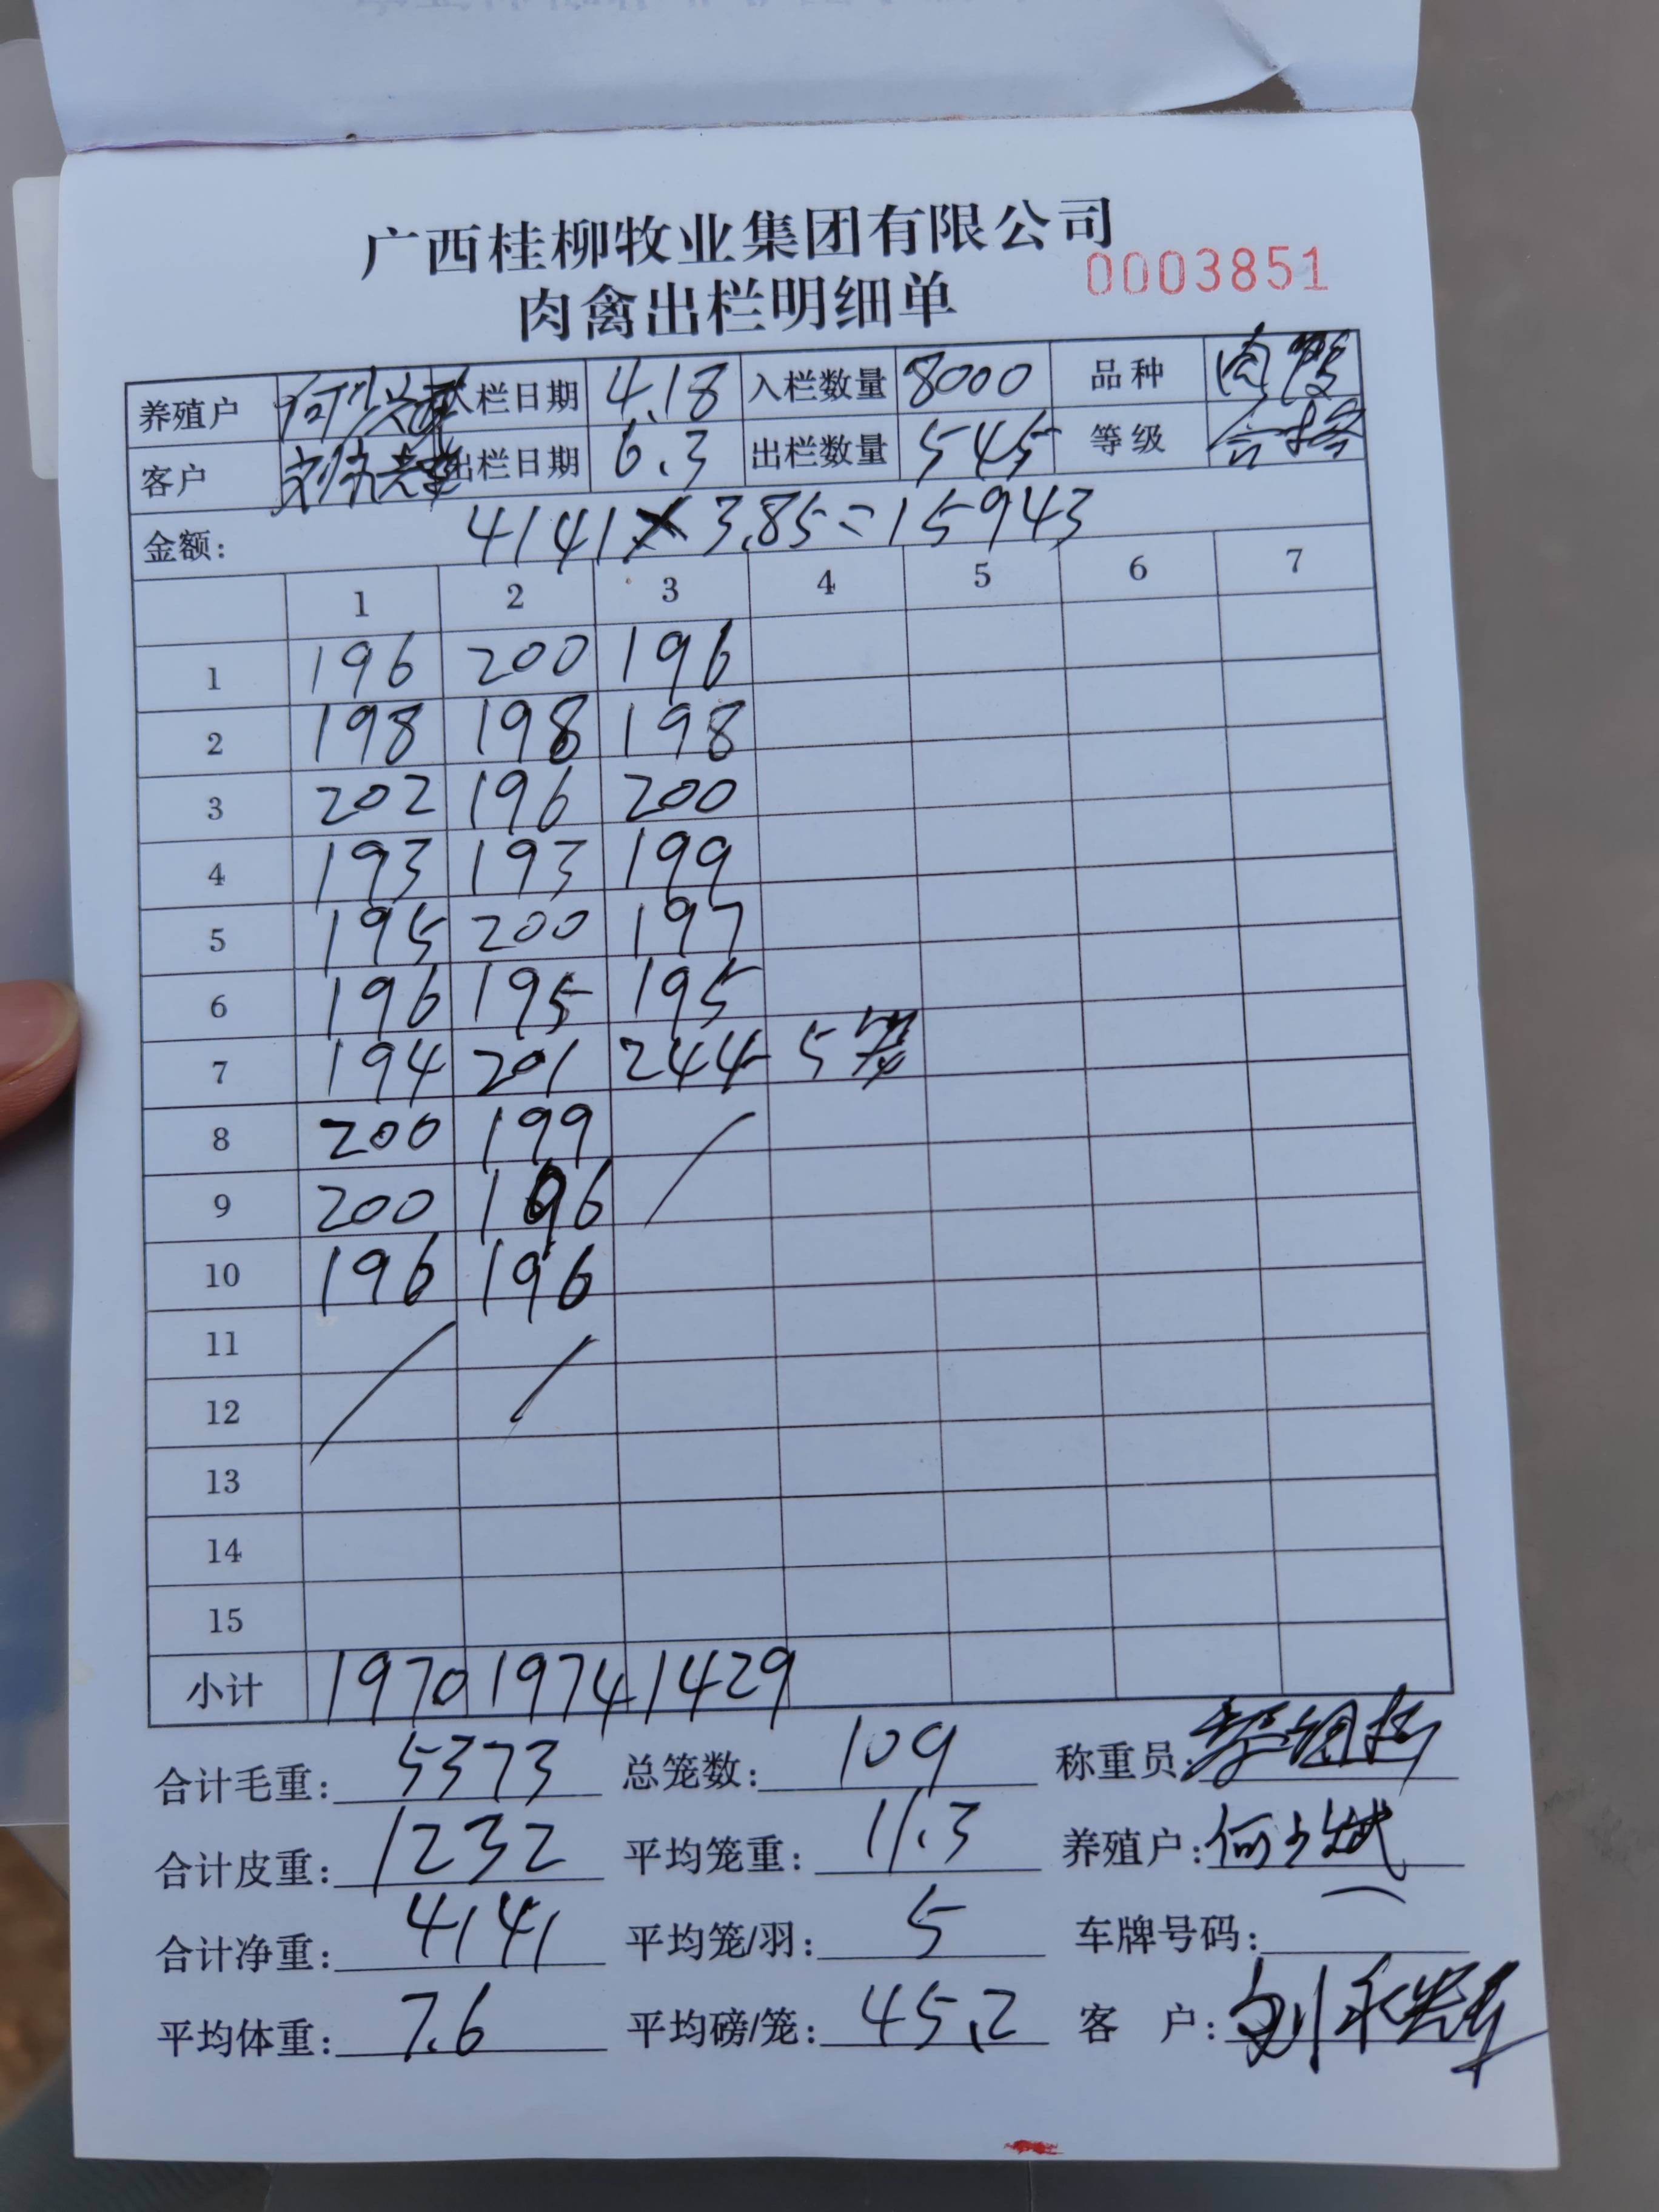 广西桂柳牧业集团有限公司
肉禽出栏明细单 0003851
养殖户 入栏日期 4.18 入栏数量 8000 品种 肉鸭
客户 出栏日期 6.3 出栏数量 545 等级 合格
金额: 4141×3.85=15943
1 2 3 4 5 6 7
1 196 200 196
2 198 198 198
3 202 196 200
4 193 193 199
5 195 200 197
6 196 195 195
7 194 201 244 5笼
8 200 199
9 200 196
10 196 196
11
12
13
14
15
小计 1970 1974 1429
合计毛重: 5373 总笼数: 109 称重员:
合计皮重: 1232 平均笼重: 11.3 养殖户:
合计净重: 4141 平均笼/羽: 5 车牌号码:
平均体重: 7.6 平均磅/笼: 45.2 客 户: